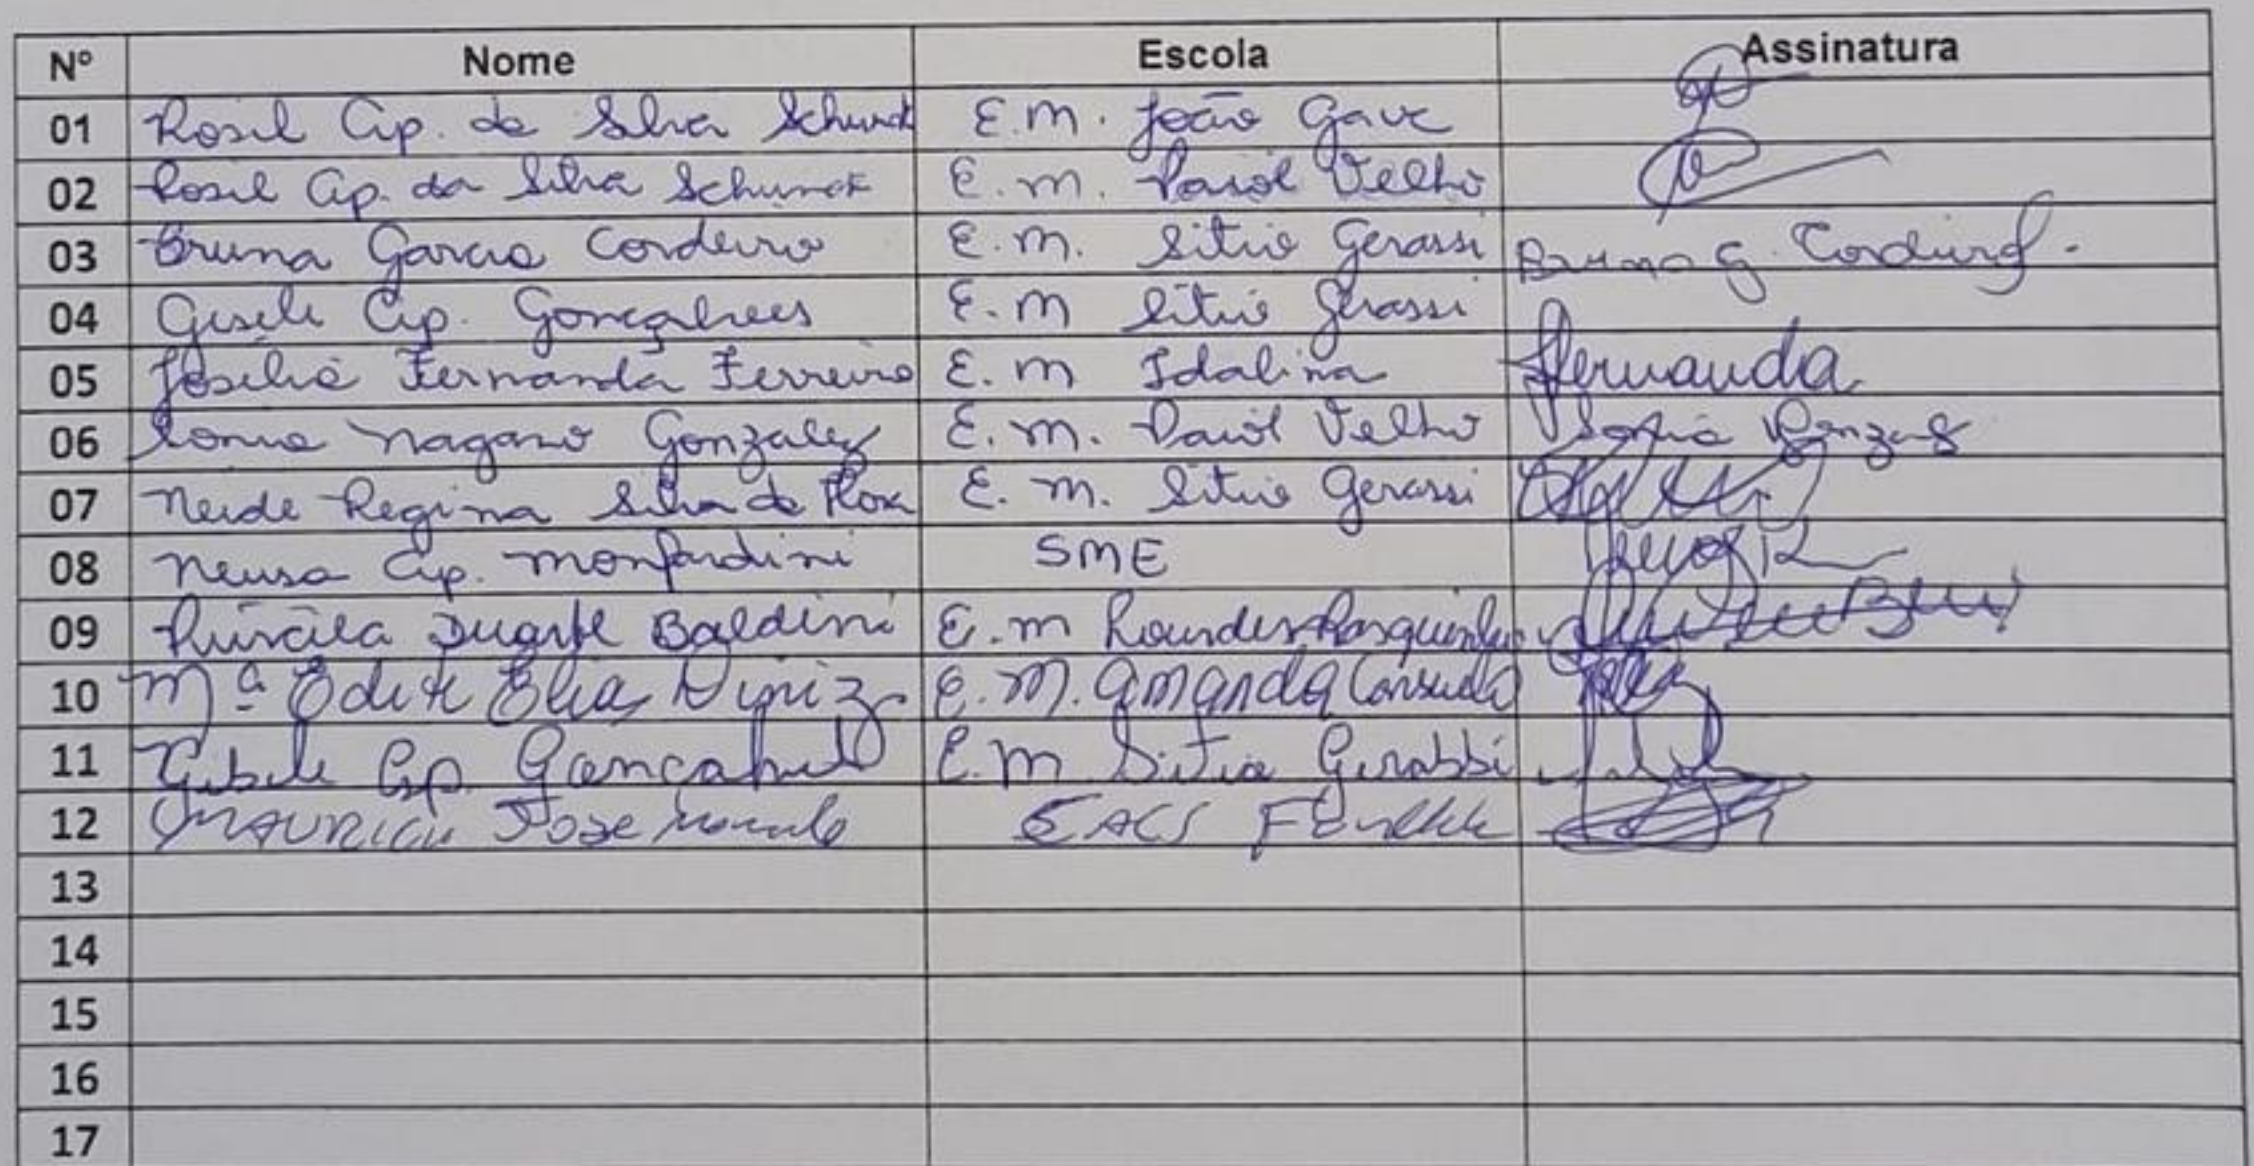 Nº Nome Escola Assinatura
01 Rosil Ap. da Silva Schunck E.M. João Gave
02 Rosil Ap. da Silva Schunck E.M. Paiol Velho
03 Bruna Garcia Cordeiro E.M. Sitio Gerassi Bruna G. Cordeiro
04 Gisele Ap. Gonçalves E.M Sitio Gerassi
05 Josélia Fernanda Ferreira E.M Idalina Fernanda
06 Sonia Nagano Gonzalez E.M. Paiol Velho Sonia
07 Neide Regina Silva da Rosa E.M. Sitio Gerassi
08 Neusa Ap. Monfardini SME
09 Priscila Duarte Baldini E.M Lourdes
10 Mª Edite Elias Diniz E.M. Amanda
11 Gisele Ap. Gonçalves E.M Sitio Gerassi
12 Mauricio Jose
13
14
15
16
17